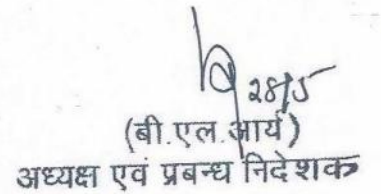 28/5
(बी.एल.आर्य)
अध्यक्ष एवं प्रबन्ध निदेशक